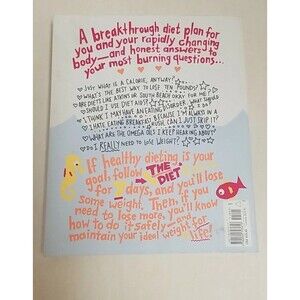 A breakthrough diet plan for
you and your rapidly changing
body—and honest answers to
your most burning questions...
JUST WHAT IS A CALORIE, ANYWAY?
WHAT'S THE BEST WAY TO LOSE TEN POUNDS?
ARE DIETS LIKE ATKINS OR SOUTH BEACH OKAY FOR ME?
SHOULD I USE DIET AIDS?
I THINK I MAY HAVE AN EATING DISORDER. WHAT SHOULD I DO?
I HATE EATING BREAKFAST BECAUSE I'M ALWAYS IN A RUSH. CAN I JUST SKIP IT?
WHAT ARE THE OMEGA OILS I KEEP HEARING ABOUT?
DO I REALLY NEED TO LOSE WEIGHT?
If healthy dieting is your
goal, follow THE DIET
for 7 days, and you'll lose
some weight. Then, if you
need to lose more, you'll know
how to do it safely—and
maintain your ideal weight for
life!